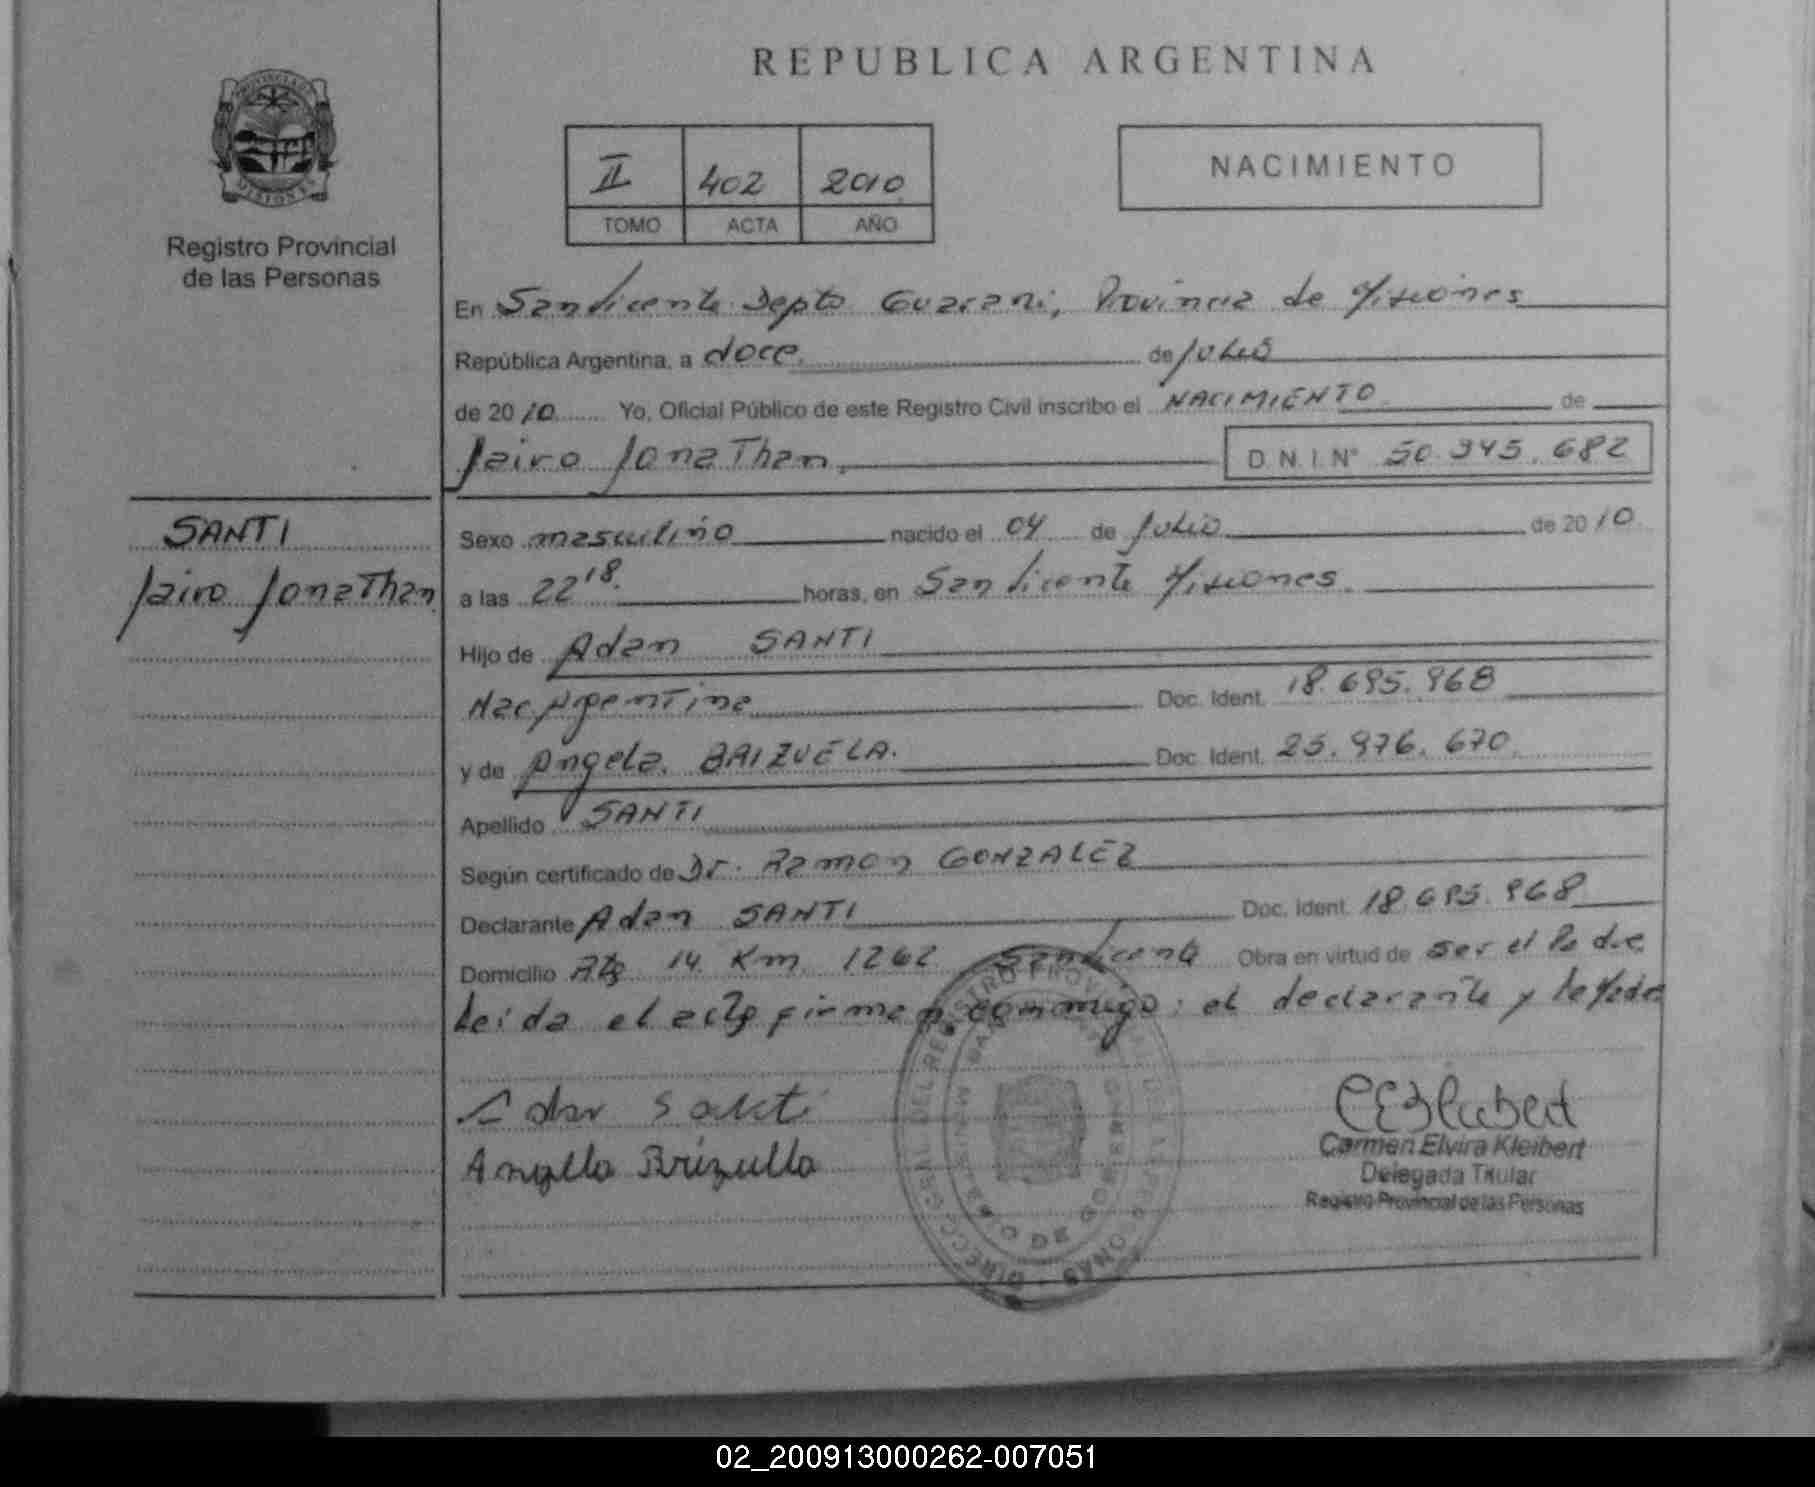 REPUBLICA ARGENTINA
PROVINCIA DE
MISIONES
Registro Provincial
de las Personas
II 402 2010
TOMO ACTA AÑO
NACIMIENTO
En San Vicente Depto Guarani, Provincia de Misiones
República Argentina, a doce de Julio
de 2010 Yo, Oficial Público de este Registro Civil inscribo el NACIMIENTO de
Jairo JonaThan, D.N.I.Nº 50.345.682
SANTI
Jairo JonaThan
Sexo masculino nacido el 04 de Julio de 2010
a las 22 18. horas, en San Vicente Misiones.
Hijo de Adan SANTI
Nac Argentina Doc. Ident. 18.695.968
y de Angela BRIZUELA. Doc. Ident. 25.976.670
Apellido SANTI
Según certificado de Dr. Ramon GONZALEZ
Declarante Adan SANTI Doc. Ident. 18.695.968
Domicilio Rta 14 Km 1262 San Vicente Obra en virtud de ser el Padre
Leida el acta firman conmigo: el declarante y la Madre
Adan Santi
Angela Brizuela
Carmen Elvira Kleibert
Delegada Titular
Registro Provincial de las Personas
02_200913000262-007051